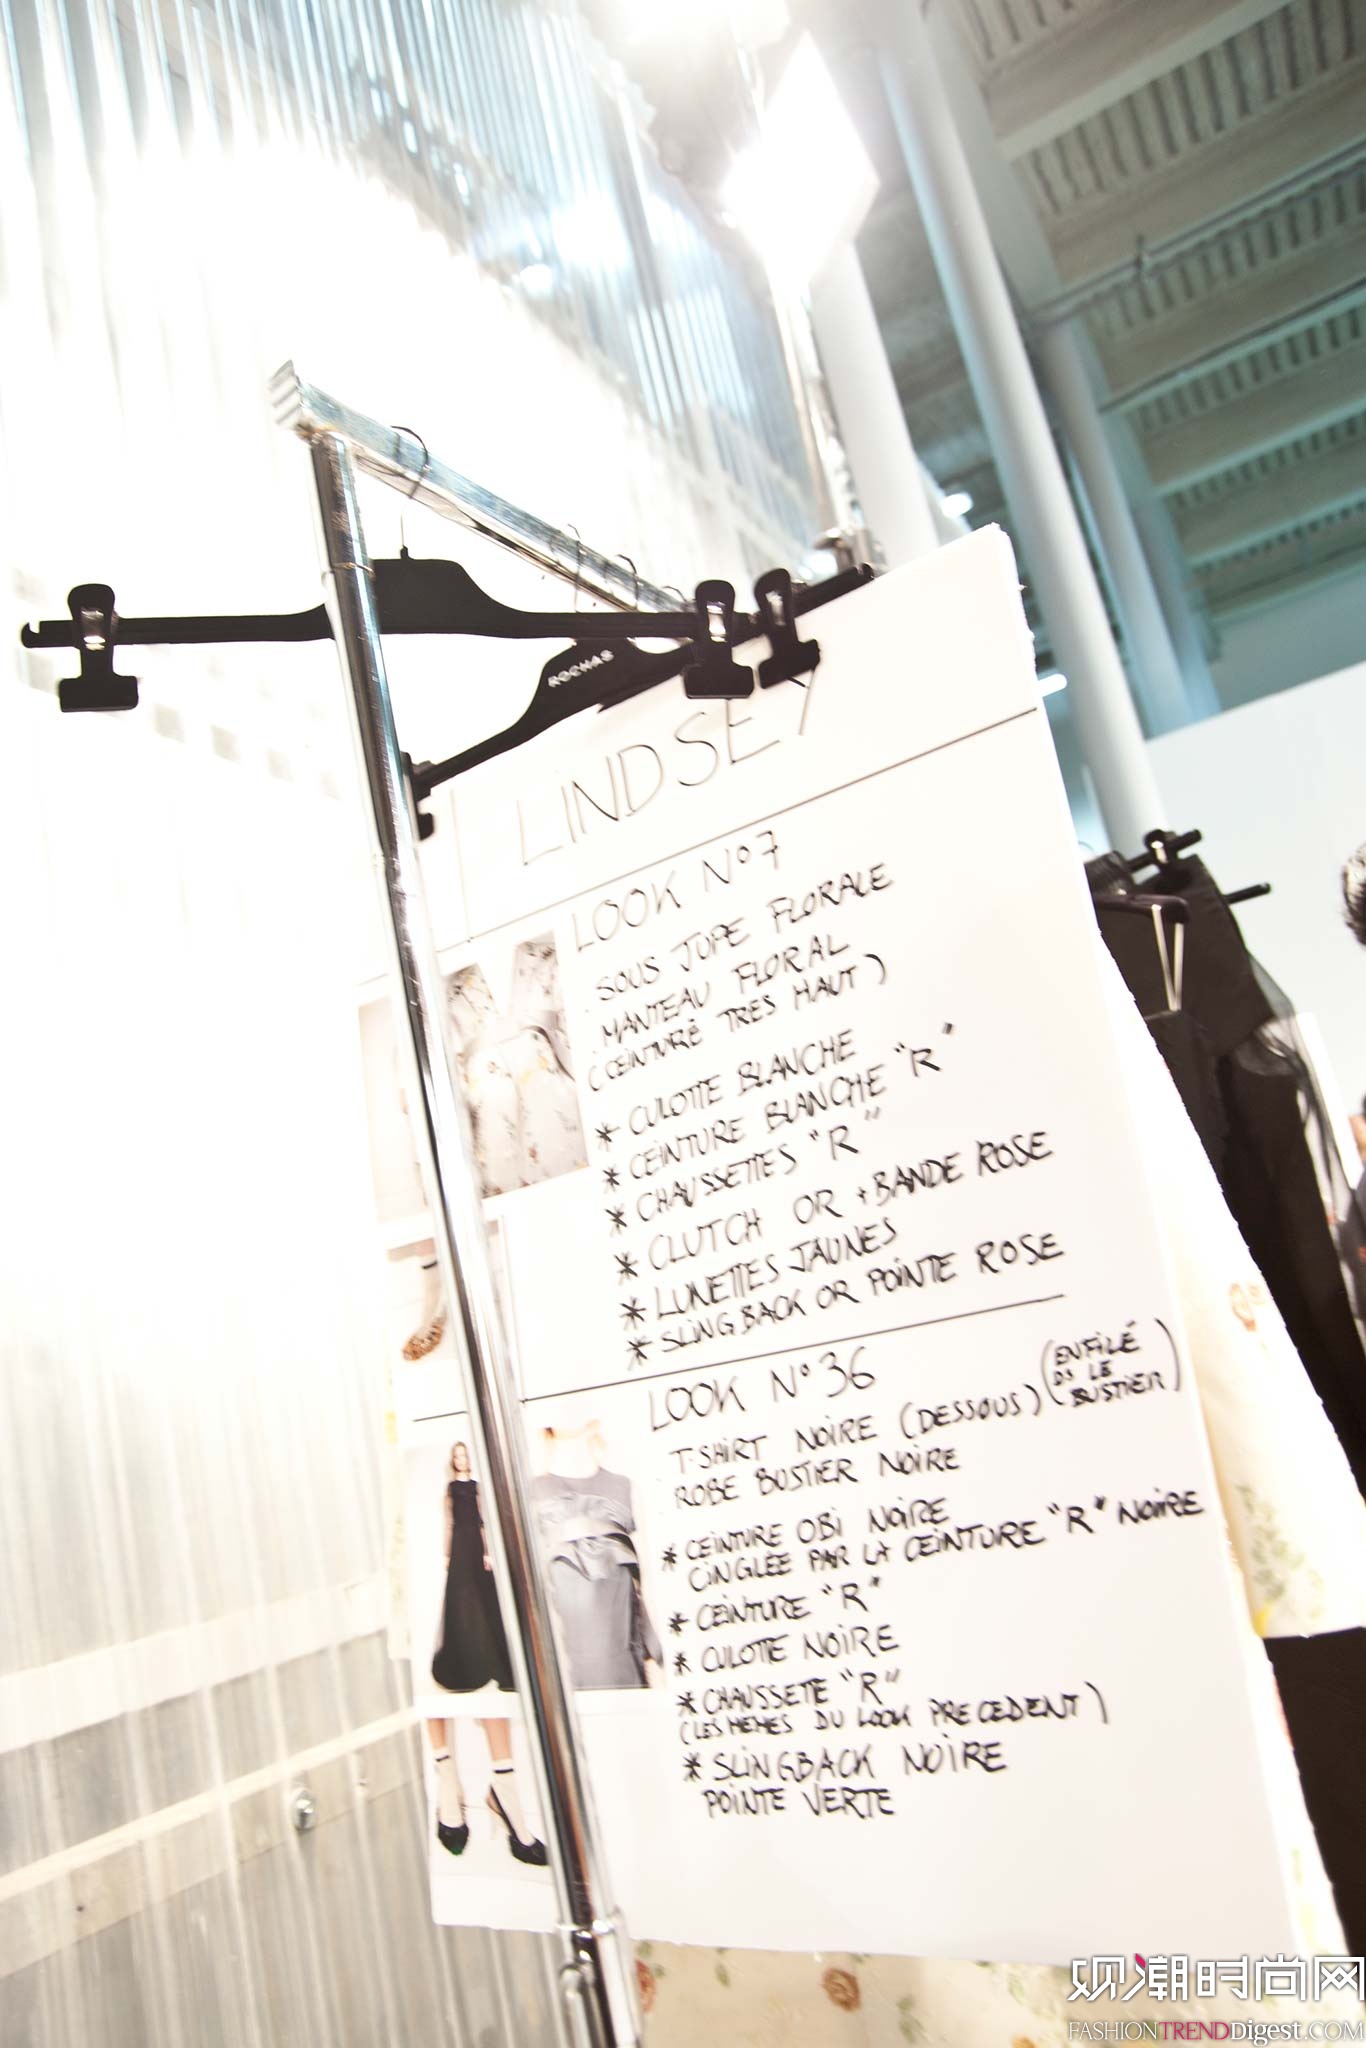 ROCHAS
LINDSEY
LOOK N°7
SOUS JUPE FLORALE
MANTEAU FLORAL
(CEINTURÉ TRES HAUT)
* CULOTTE BLANCHE
* CEINTURE BLANCHE "R"
* CHAUSSETTES "R"
* CLUTCH OR + BANDE ROSE
* LUNETTES JAUNES
* SLINGBACK OR POINTE ROSE
LOOK N°36
T-SHIRT NOIRE (DESSOUS) (ENFILÉ
DS LE
BUSTIER)
ROBE BUSTIER NOIRE
* CEINTURE OBI NOIRE
CINGLÉE PAR LA CEINTURE "R" NOIRE
* CEINTURE "R"
* CULOTTE NOIRE
* CHAUSSETTE "R"
(LES MEMES DU LOOK PRECEDENT)
* SLINGBACK NOIRE
POINTE VERTE
观潮时尚网
FASHIONTRENDDigest.COM